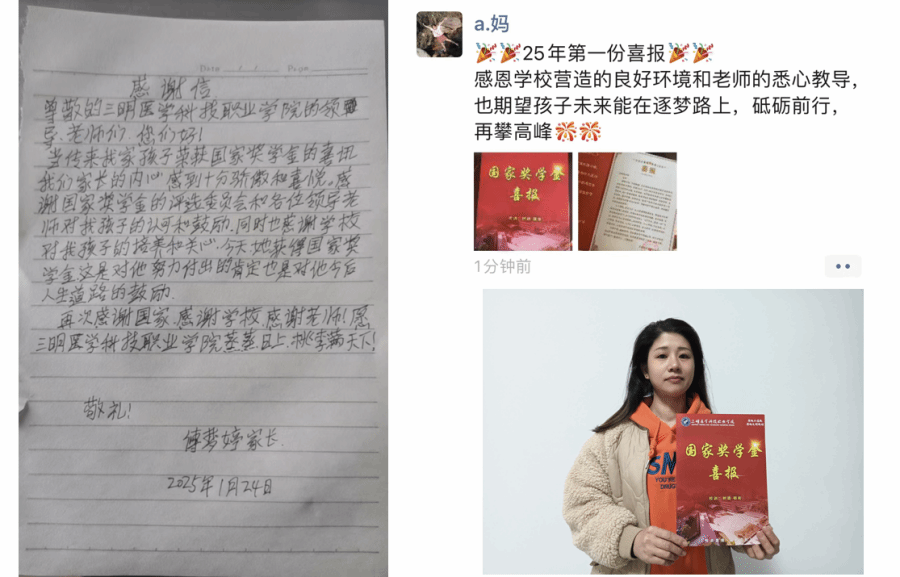 Date Page
感谢信
尊敬的三明医学科技职业学院的领
导、老师们 您们好!
当传来我家孩子荣获国家奖学金的喜讯
我们家长的内心感到十分骄傲和喜悦。感
谢国家奖学金的评选委员会和各位领导老
师对我孩子的认可和鼓励.同时也感谢学校
对我孩子的培养和关心.今天她获得国家奖
学金.这是对他努力付出的肯定也是对他今后
人生道路的鼓励.
再次感谢国家.感谢学校.感谢老师!愿
三明医学科技职业学院蒸蒸日上.桃李满天下!
敬礼!
傅梦婷家长.
2025年1月24日
a.妈
🎉🎉25年第一份喜报🎉🎉
感恩学校营造的良好环境和老师的悉心教导，
也期望孩子未来能在逐梦路上，砥砺前行，
再攀高峰🎊🎊
国家奖学金
喜报
喜报
1分钟前
国家奖学金
喜报